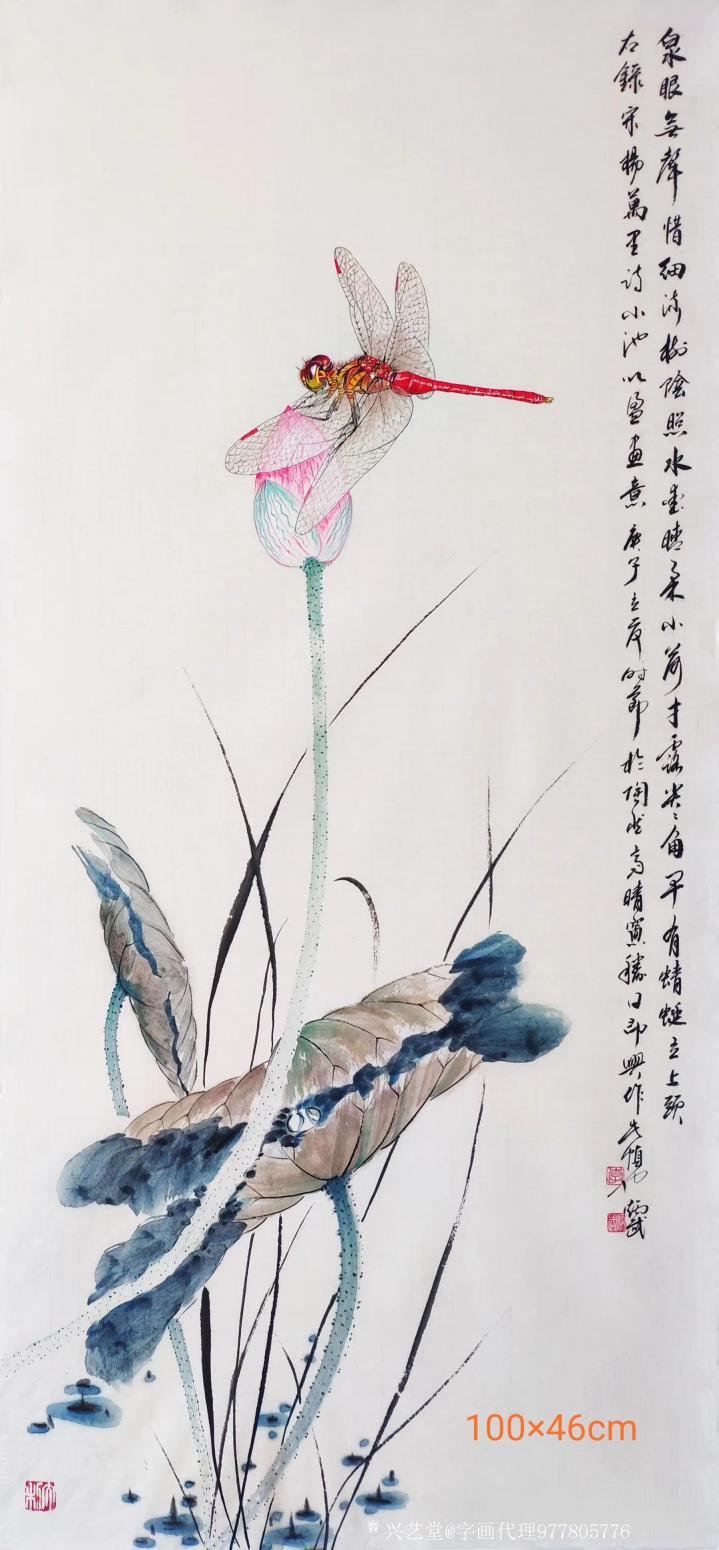 泉眼無聲惜細流樹陰照水愛晴柔小荷才露尖尖角早有蜻蜓立上頭
右錄宋楊萬里詩小池以盈畫意庚子立夏時節於陶然高晴窗
日即興作
100×46cm
兴艺堂@字画代理977805776